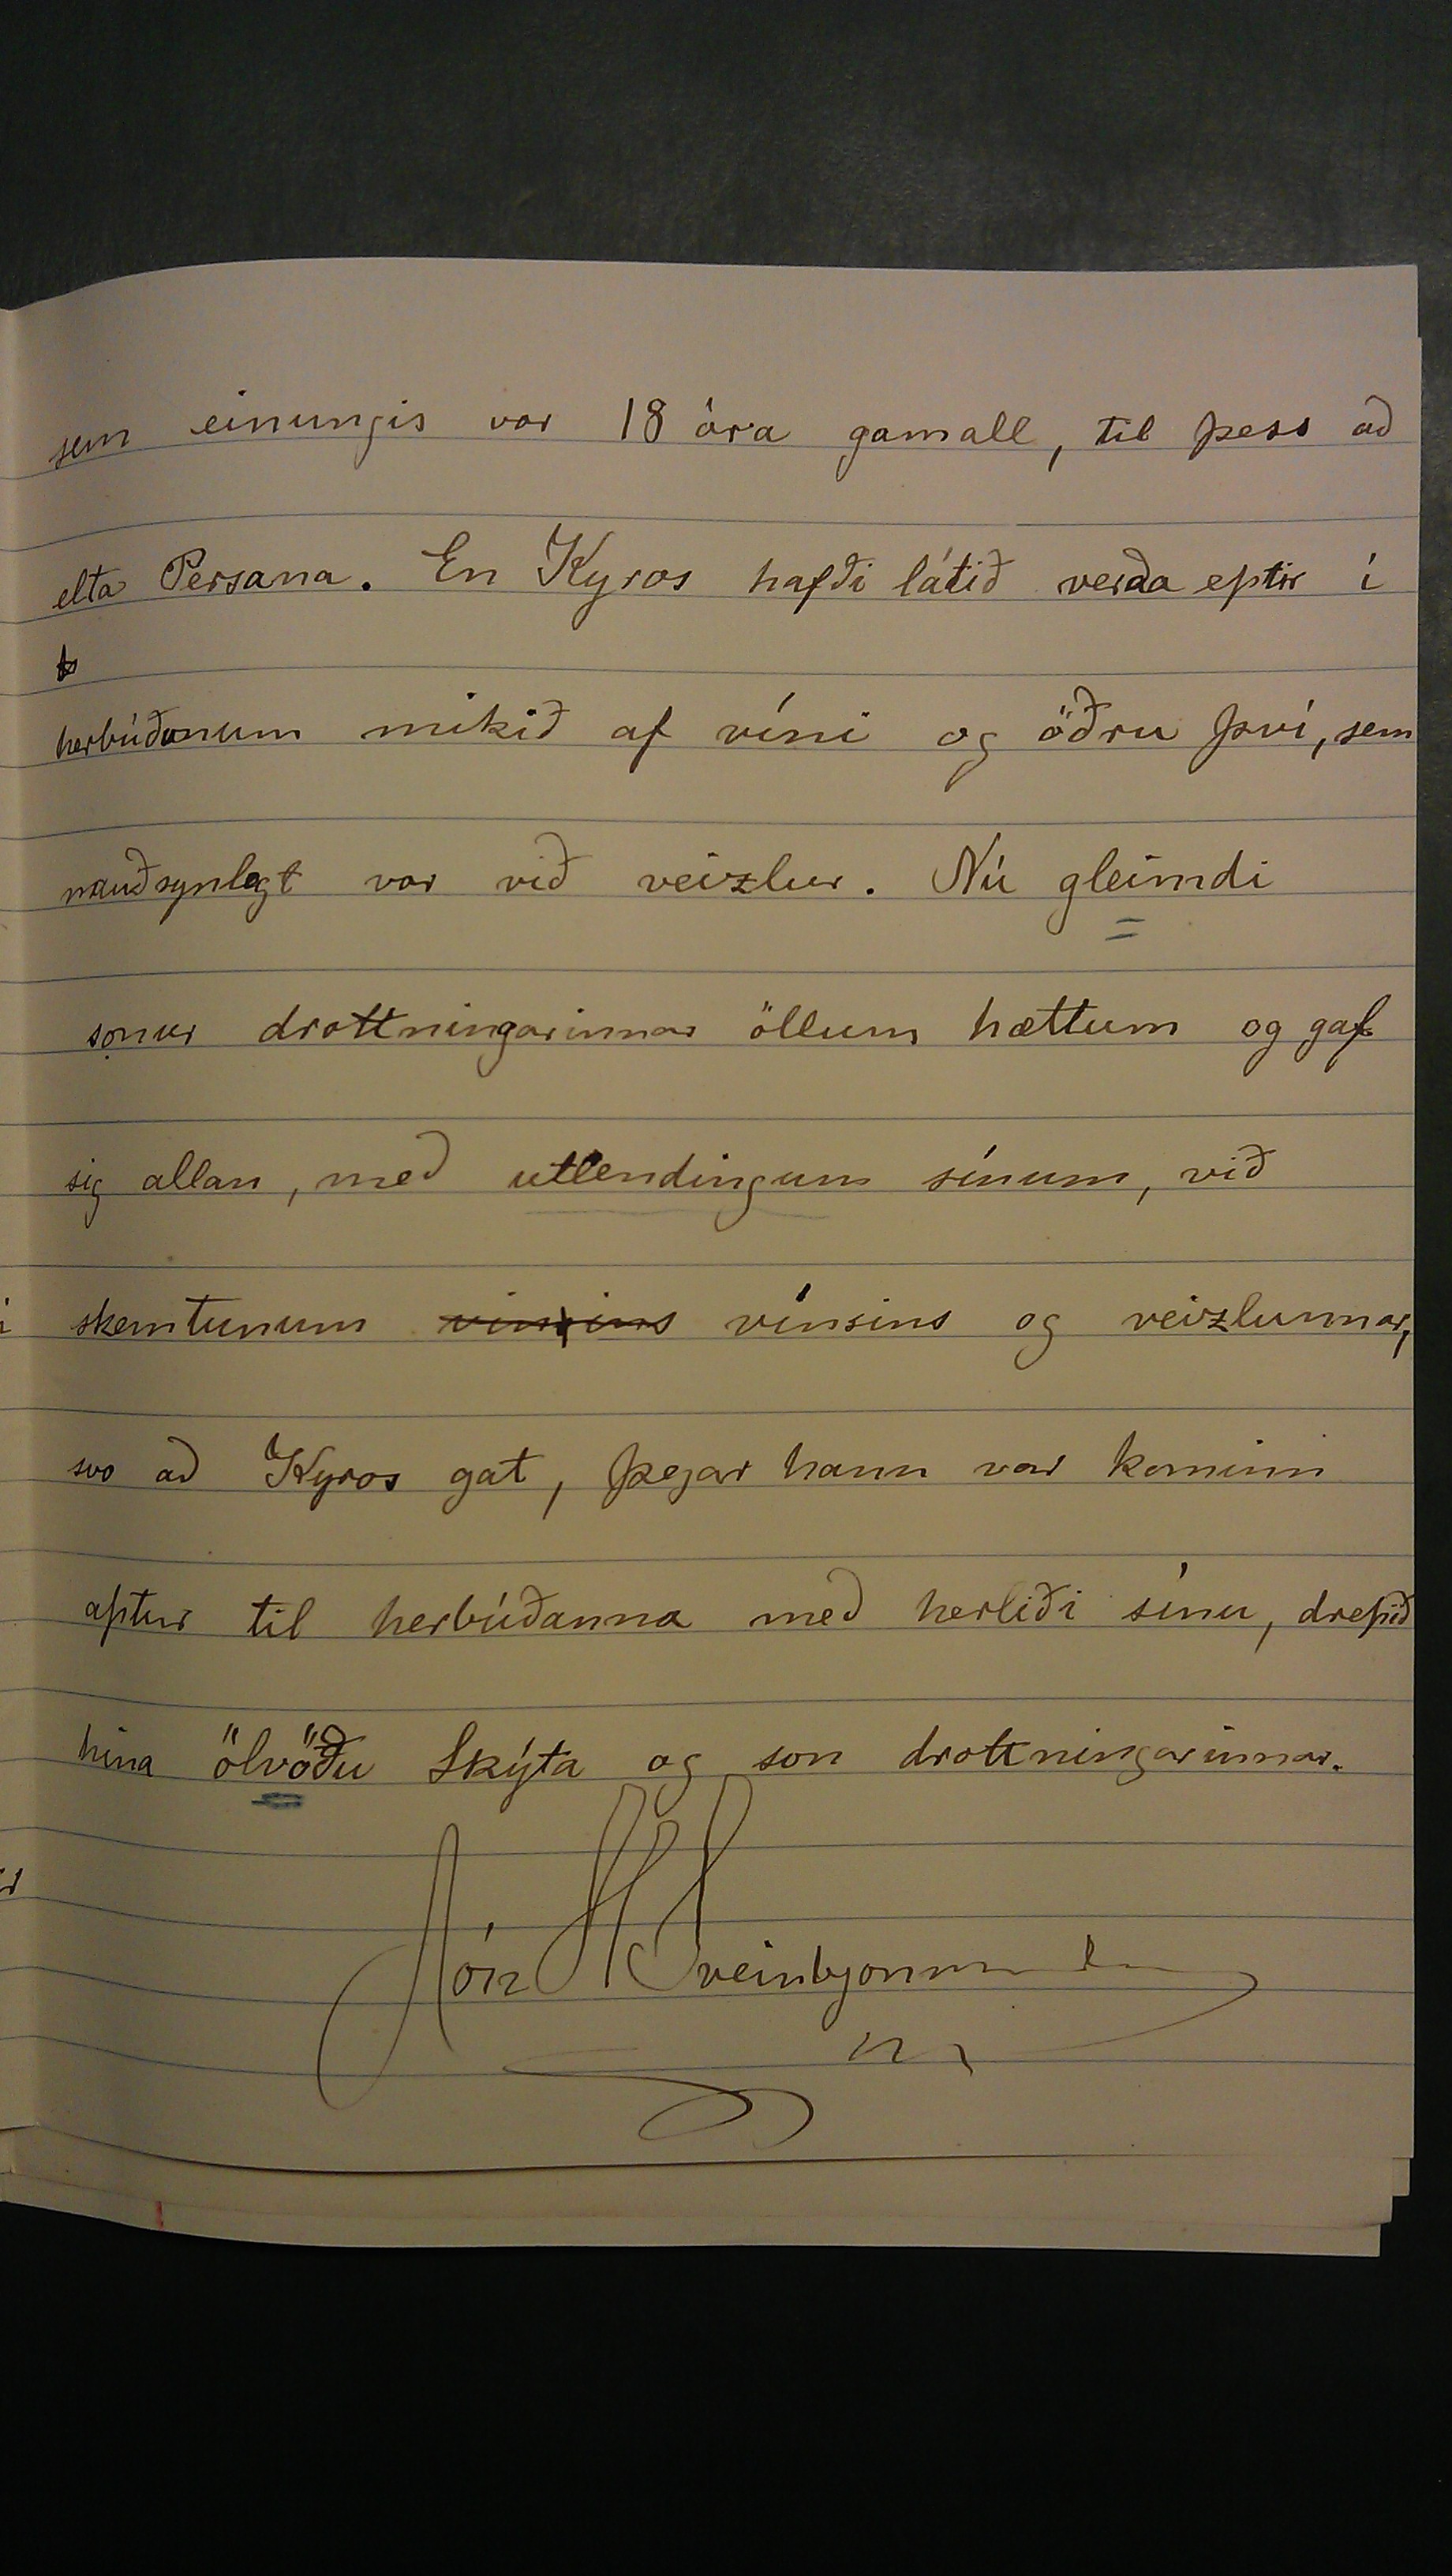 sem einungis var 18 ára gamall, til þess að
elta Persana. En Kyros hafði látið verða eptir í
herbúðunum mikið af víni og öðru því, sem
nauðsynlegt var við veizlur. Nú gleimdi
sonur drottningarinnar öllum hættum og gaf
sig allan, með utlendingum sínum, við
skemtunum vínsins og veizlunnar,
svo að Kyros gat, þegar hann var kominn
aptur til herbúðanna með herliði sínu, drepið
hina ölvöðu Skýta og son drottningarinnar.
Jón H Sveinbjörnsson